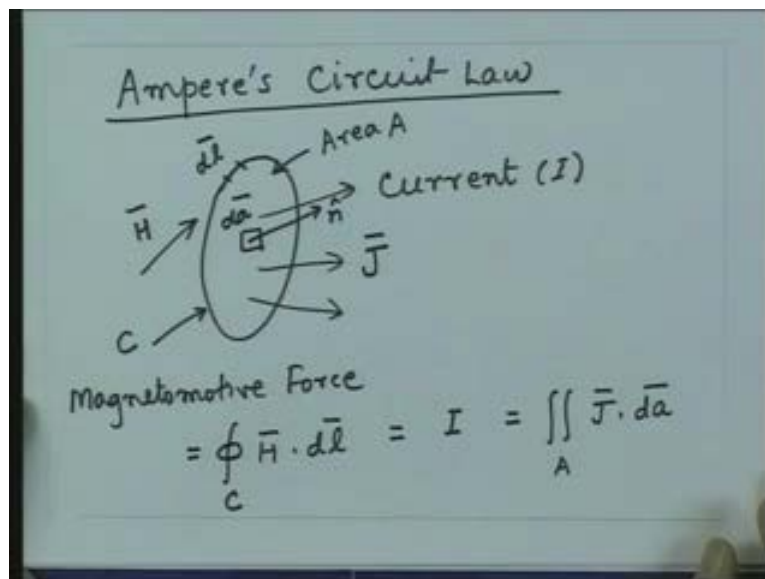 Ampere's Circuit Law
d̄l
Area A
Current (I)
H̄
d̄a
n̂
J̄
C
Magnetomotive Force
= ∮ H̄ · d̄l = I = ∬ J̄ · d̄a
C A